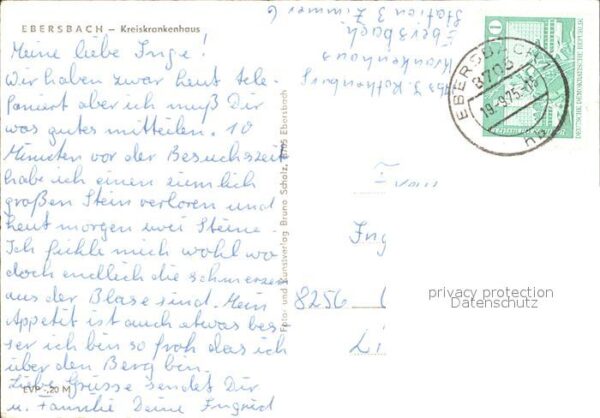 EBERSBACH – Kreiskrankenhaus
Meine liebe Inge!
Wir haben zwar heut tele-
foniert aber ich muß Dir
was gutes mitteilen. 10
Minuten vor der Besuchszeit
habe ich einen ziemlich
großen Stein verloren und
heut morgen zwei Steine.
Ich fühle mich wohl wo
doch endlich die schmerzen
aus der Blase sind. Mein
Appetit ist auch etwas bes-
ser ich bin so froh das ich
über den Berg bin.
Liebe Grüsse sendet Dir
u. Familie Deine Ingrid
EVP -,20 M
Foto: und Kunstverlag Bruno Scholz, 8705 Ebersbach
Abs. I. Rothenburg
Krankenhaus
Ebersbach
Station 3 Zimmer 6
EBERSBACH
8705
19.-9.75.
nb
10
DEUTSCHE DEMOKRATISCHE REPUBLIK
Frau
Ing
8256
Li
privacy protection
Datenschutz